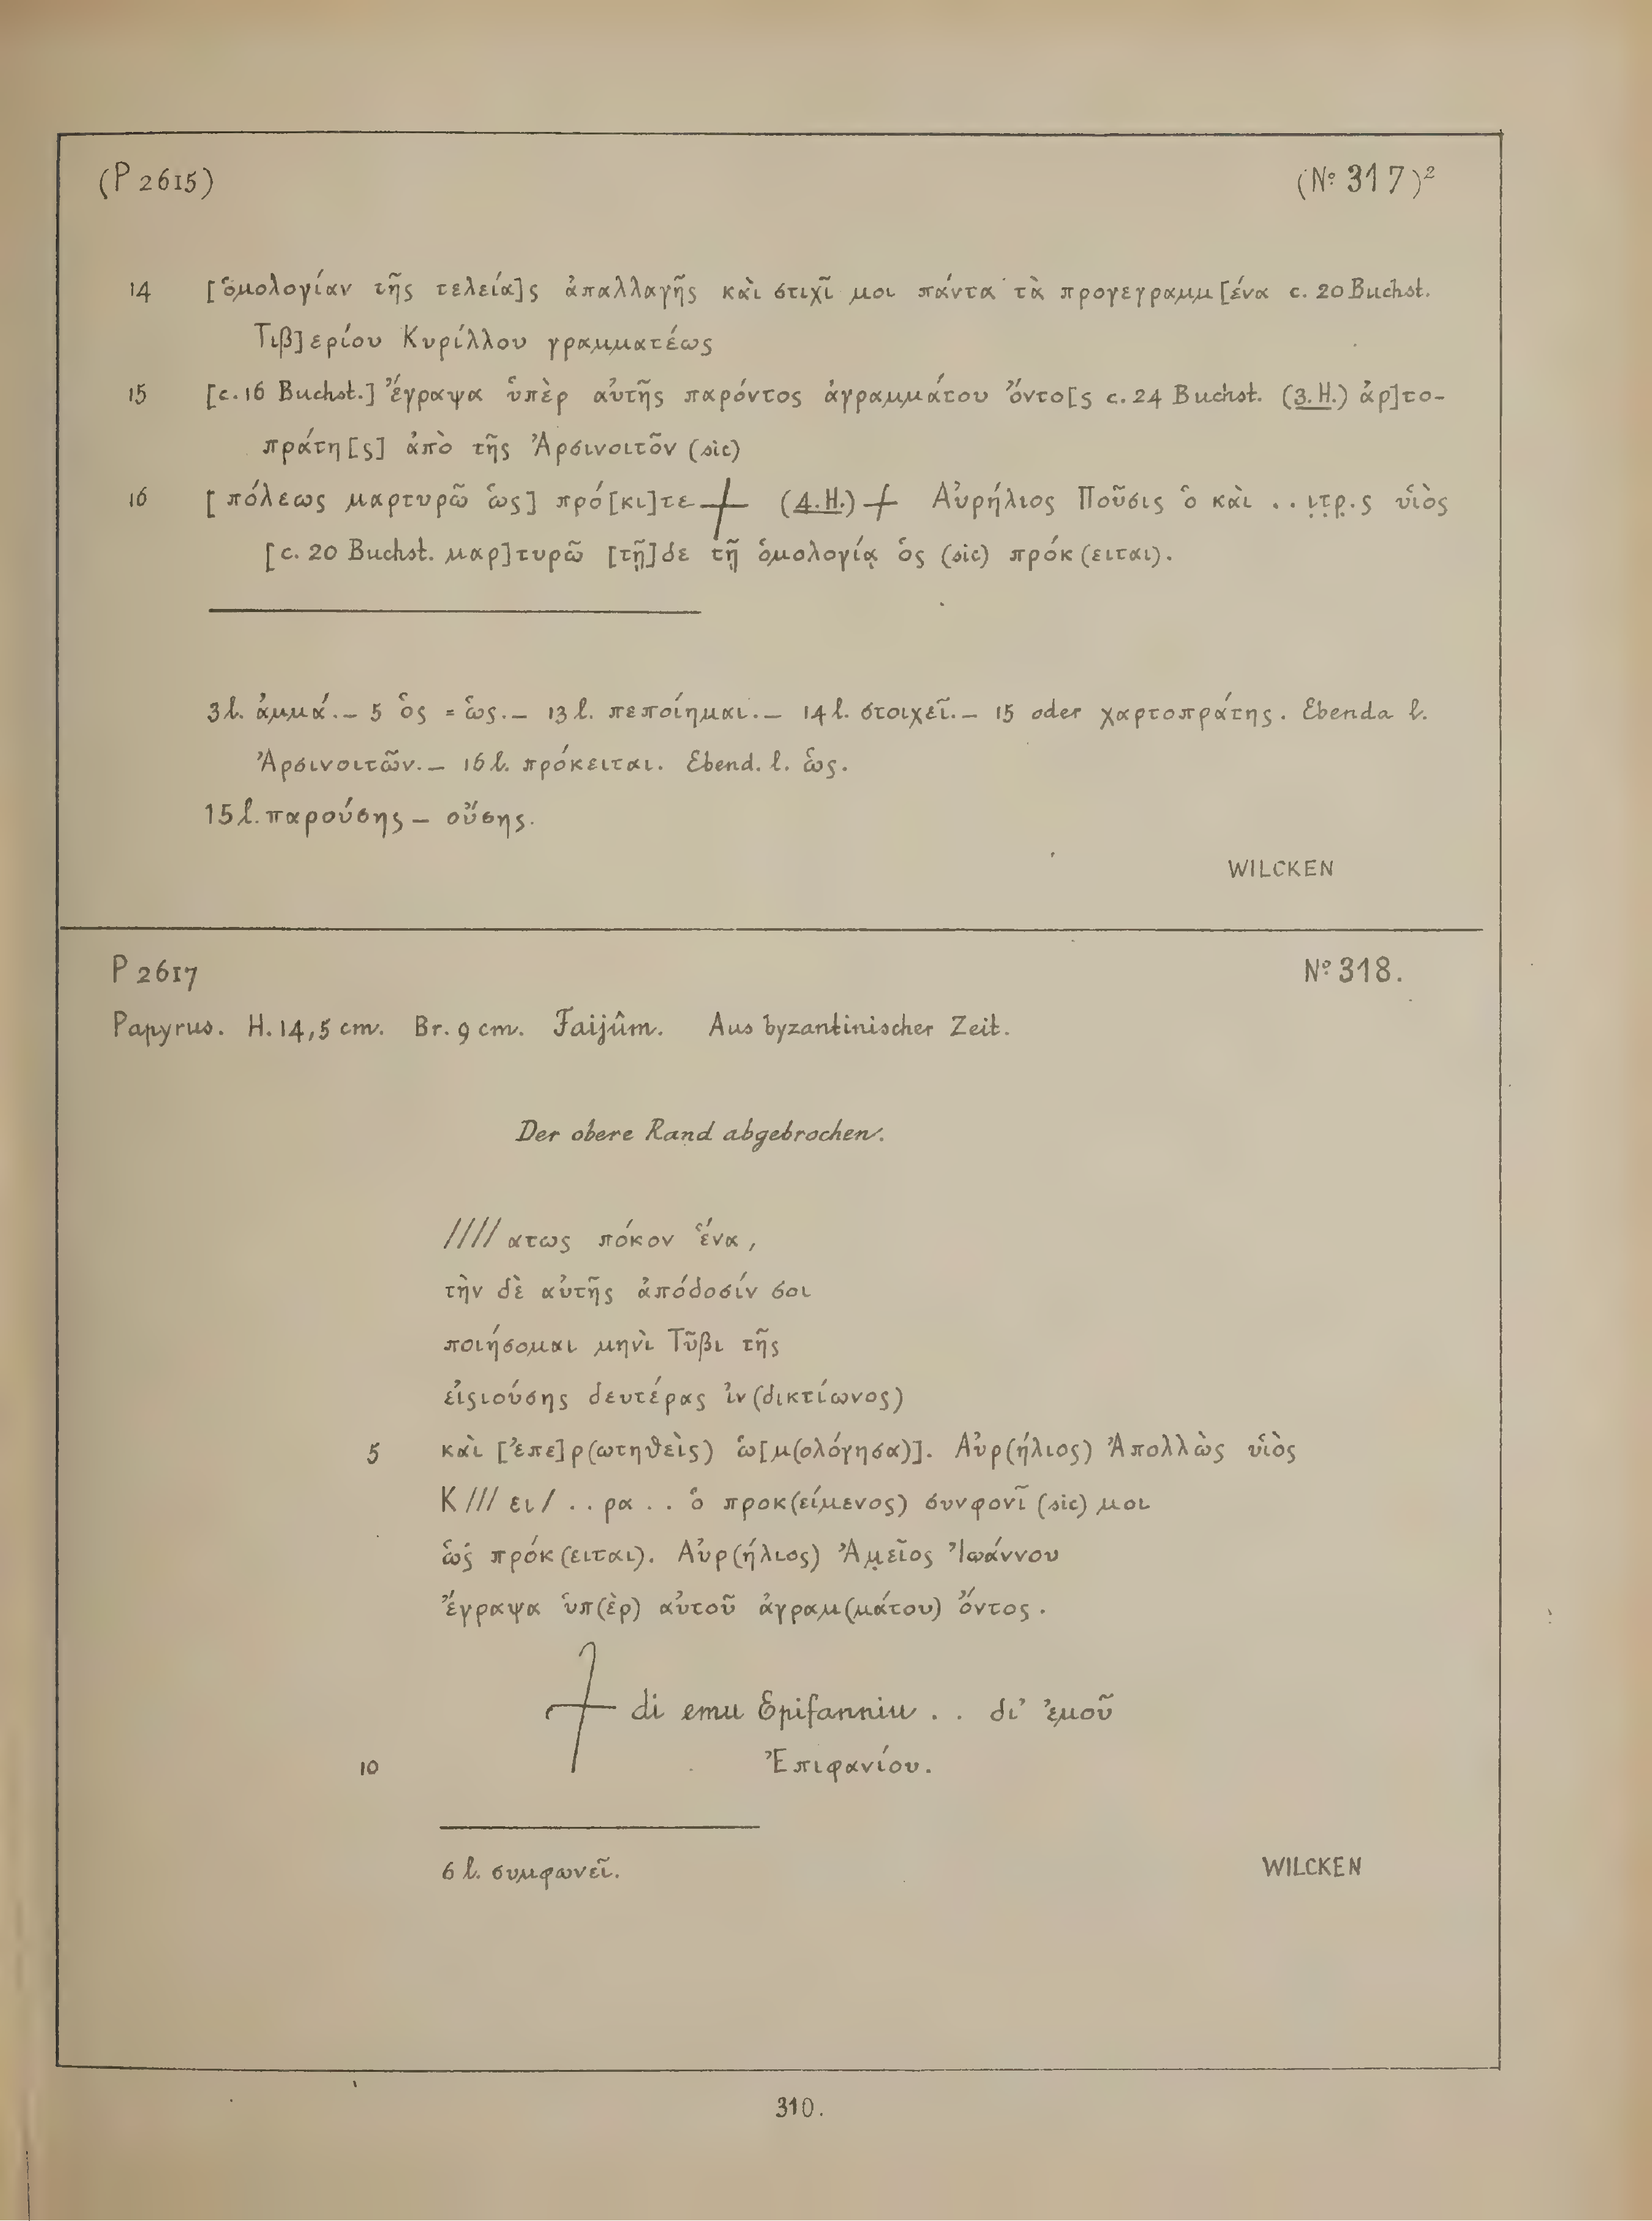 (P 2615) (No 317)2
14 [ὁμολογίαν τῆς τελεία]ς ἀπαλλαγῆς καὶ στιχῖ μοι πάντα τὰ προγεγραμμ[ένα c. 20 Buchst.
Τιβ]ερίου Κυρίλλου γραμματέως
15 [c. 16 Buchst.] ἔγραψα ὑπὲρ αὐτῆς παρόντος ἀγραμμάτου ὄντο[ς c. 24 Buchst. (3. H.) ἀρ]το-
πράτη[ς] ἀπὸ τῆς Ἀρσινοιτõν (sic)
16 [πόλεως μαρτυρῶ ὡς] πρό[κι]τε + (4. H.) + Αὐρήλιος Ποῦσις ὁ καὶ . . ι̣τ̣ρ̣.ς υἱὸς
[c. 20 Buchst. μαρ]τυρῶ [τῇ]δε τῇ ὁμολογίᾳ ὁς (sic) πρόκ(ειται).
3 l. ἀμμά. – 5 ὁς = ὡς. – 13 l. πεποίημαι. – 14 l. στοιχεῖ. – 15 oder χαρτοπράτης. Ebenda l.
Ἀρσινοιτῶν. – 16 l. πρόκειται. Ebend. l. ὡς.
15 l. παρούσης – οὔσης.
WILCKEN
P 2617 No 318.
Papyrus. H. 14,5 cm. Br. 9 cm. Faijûm. Aus byzantinischer Zeit.
Der obere Rand abgebrochen.
//// ατως πόκον ἕνα,
τὴν δὲ αὐτῆς ἀπόδοσίν σοι
ποιήσομαι μηνὶ Τῦβι τῆς
εἰςιούσης δευτέρας ἰν(δικτίωνος)
5 καὶ [ἐπε]ρ(ωτηθεὶς) ὡ[μ(ολόγησα)]. Αὐρ(ήλιος) Ἀπολλὼς υἱὸς
Κ /// ει / . . ρα . . ὁ προκ(είμενος) συνφονῖ (sic) μοι
ὡς πρόκ(ειται). Αὐρ(ήλιος) Ἀμ̣εῖος Ἰωάννου
ἔγραψα ὑπ(ὲρ) αὐτοῦ ἀγραμ(μάτου) ὄντος.
+ di emu Epifanniu . . δι’ ἐμοῦ
10 Ἐπιφανίου.
6 l. συμφωνεῖ. WILCKEN
310.